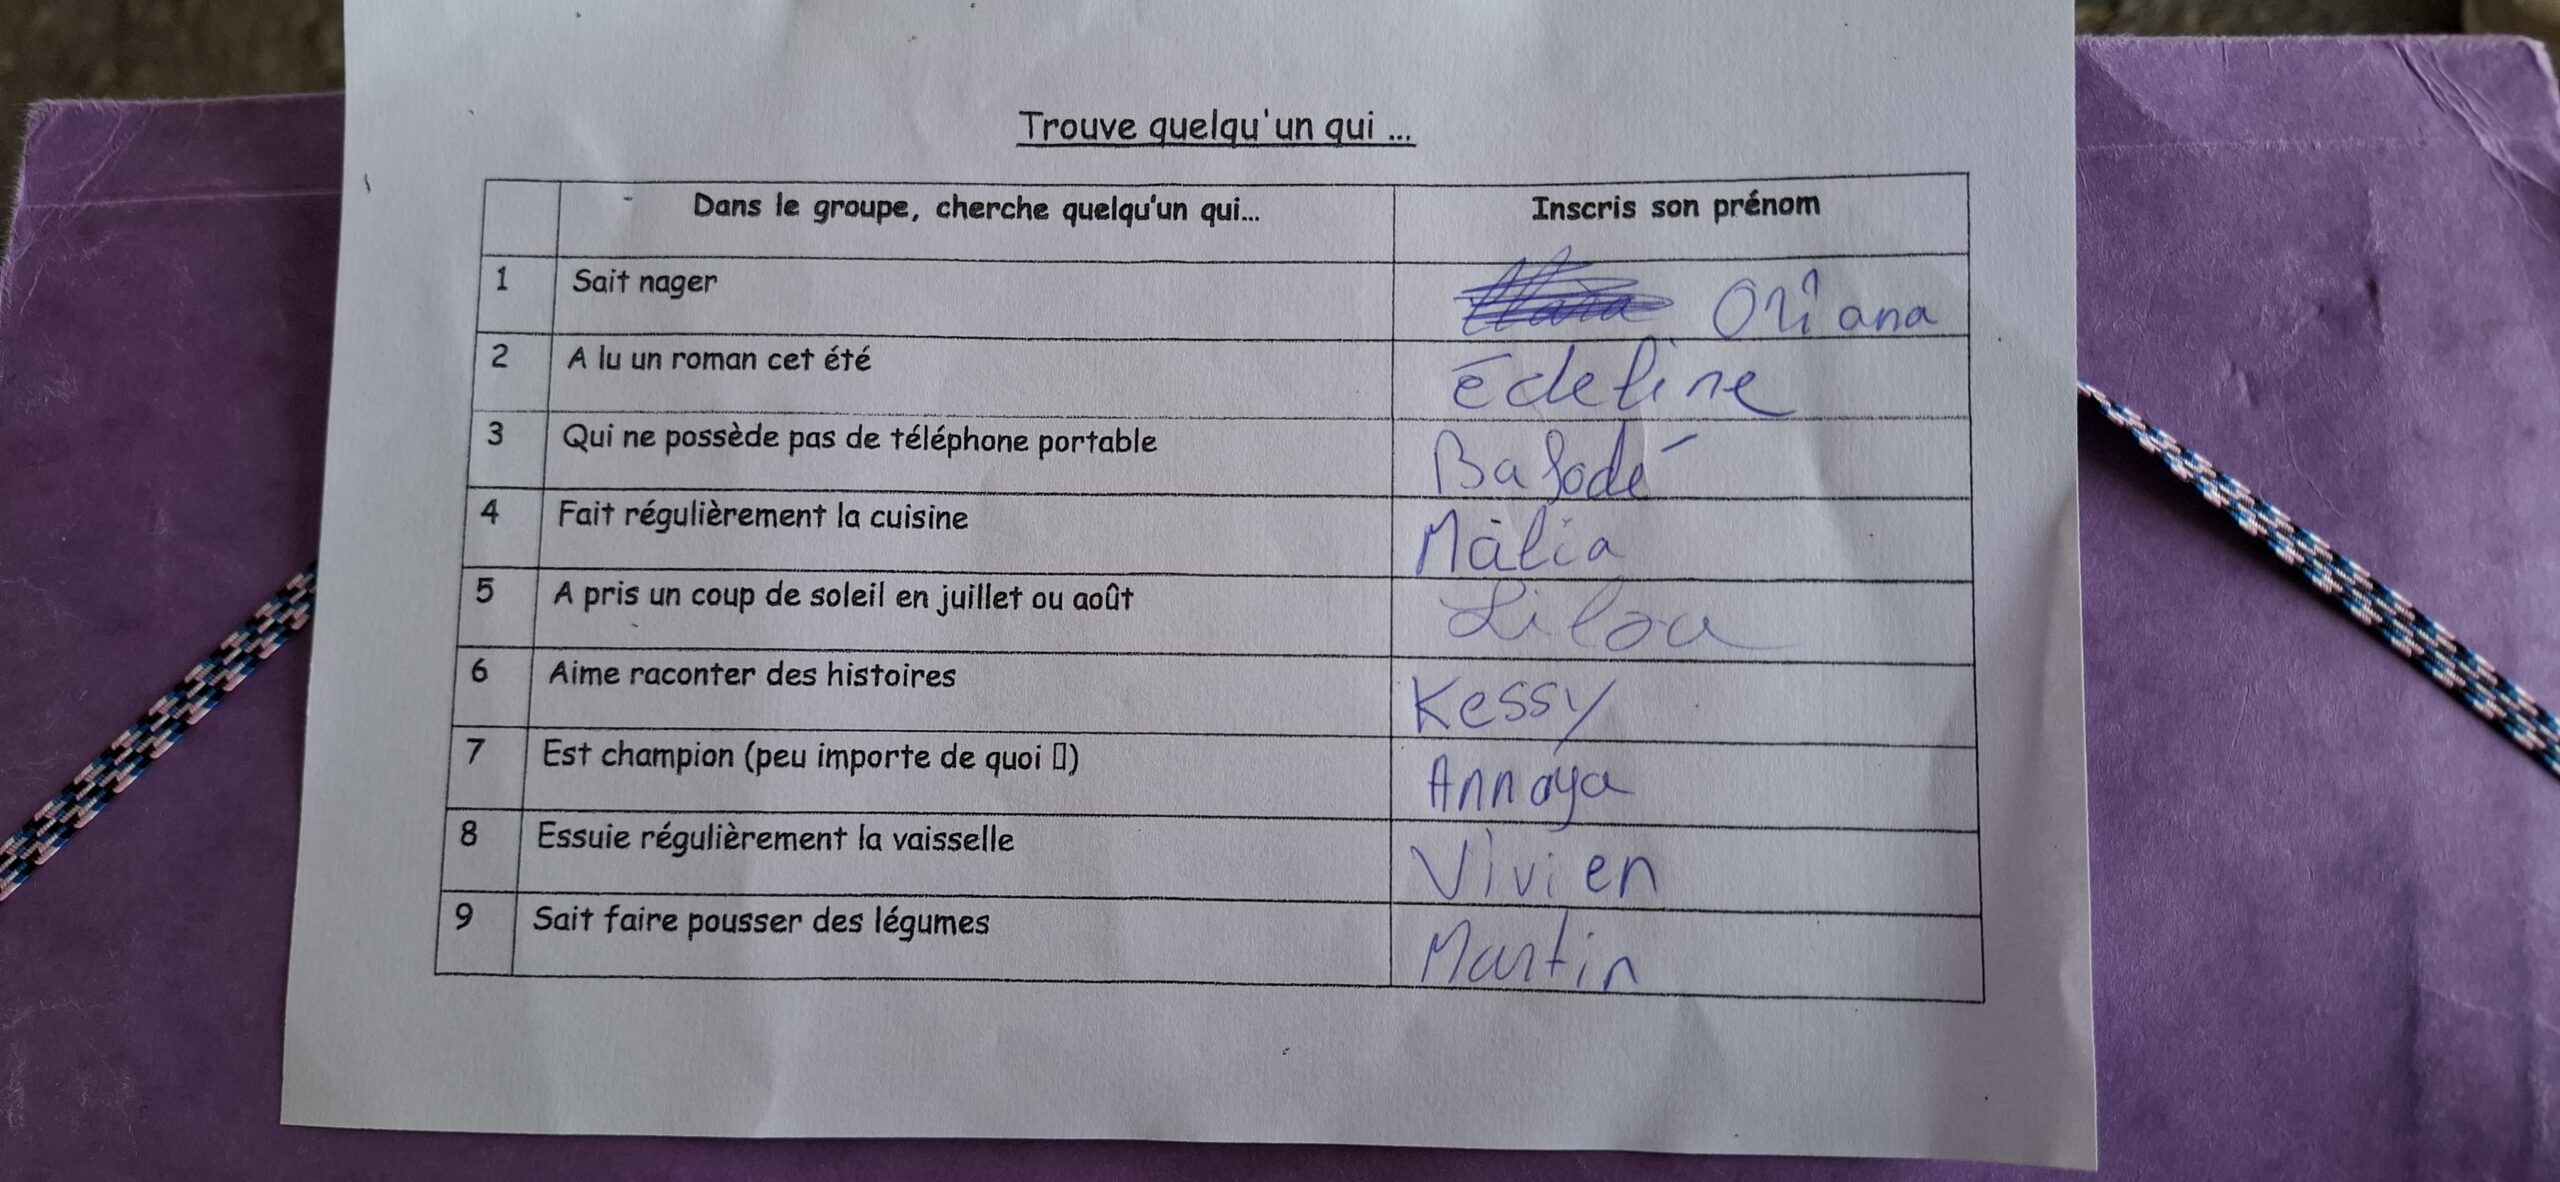 Trouve quelqu'un qui ...
Dans le groupe, cherche quelqu'un qui... Inscris son prénom
1 Sait nager Oriana
2 A lu un roman cet été Édeline
3 Qui ne possède pas de téléphone portable Bafodé
4 Fait régulièrement la cuisine Màlia
5 A pris un coup de soleil en juillet ou août Lilou
6 Aime raconter des histoires Kessy
7 Est champion (peu importe de quoi ▯) Annaya
8 Essuie régulièrement la vaisselle Vivien
9 Sait faire pousser des légumes Martin